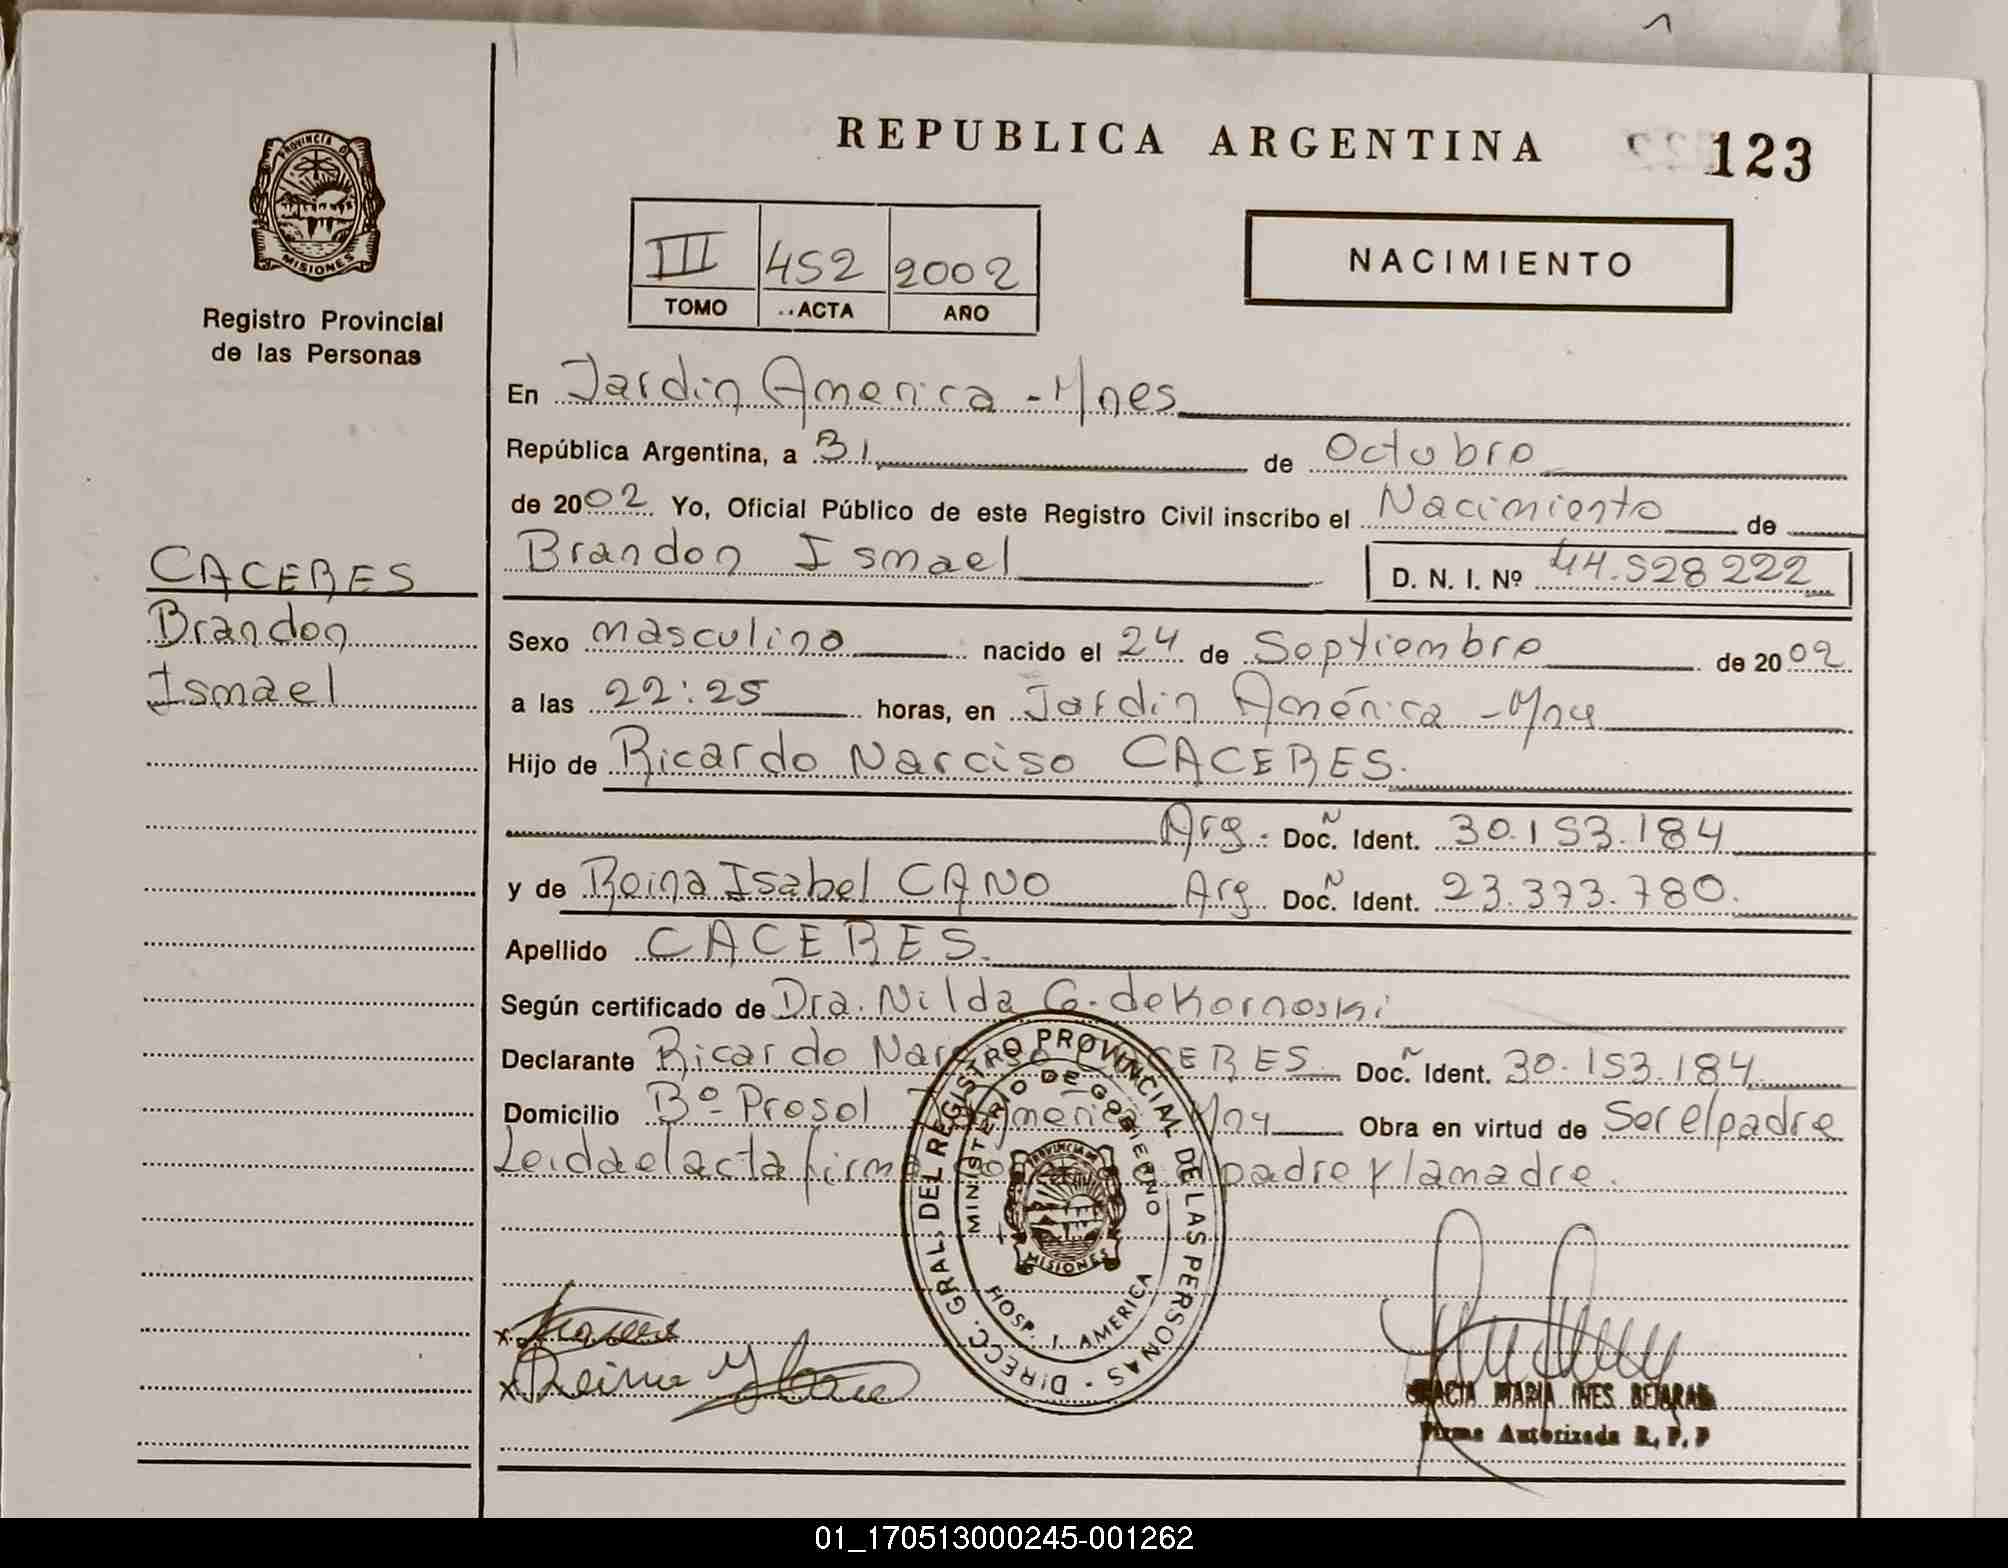 REPUBLICA ARGENTINA 123
PROVINCIA DE MISIONES
Registro Provincial
de las Personas
III 452 2002
TOMO ACTA AÑO
NACIMIENTO
En Jardin America - Mnes
República Argentina, a 31 de Octubre
de 2002 Yo, Oficial Público de este Registro Civil inscribo el Nacimiento de
Brandon Ismael D. N. I. Nº 44.528222
CACERES
Brandon
Ismael
Sexo masculino nacido el 24 de Septiembre de 2002
a las 22:25 horas, en Jardin América - Mns
Hijo de Ricardo Narciso CACERES.
Arg. Doc. Ident. 30.153.184
y de Reina Isabel CANO Arg. Doc. Ident. 23.373.780.
Apellido CACERES.
Según certificado de Dra. Nilda G. de Kornoski
Declarante Ricardo Narciso CACERES. Doc. Ident. 30.153.184
Domicilio Bº Prosol America Mns Obra en virtud de Ser el padre
Leida el acta firma el padre y la madre.
DIRECC. GRAL. DEL REGISTRO PROVINCIAL DE LAS PERSONAS
MINISTERIO DE GOBIERNO
PROVINCIA DE MISIONES
HOSP. J. AMERICA
x
x Reina
GRACIA MARIA INES BEJARANO
Firma Autorizada R. P. P
01_170513000245-001262